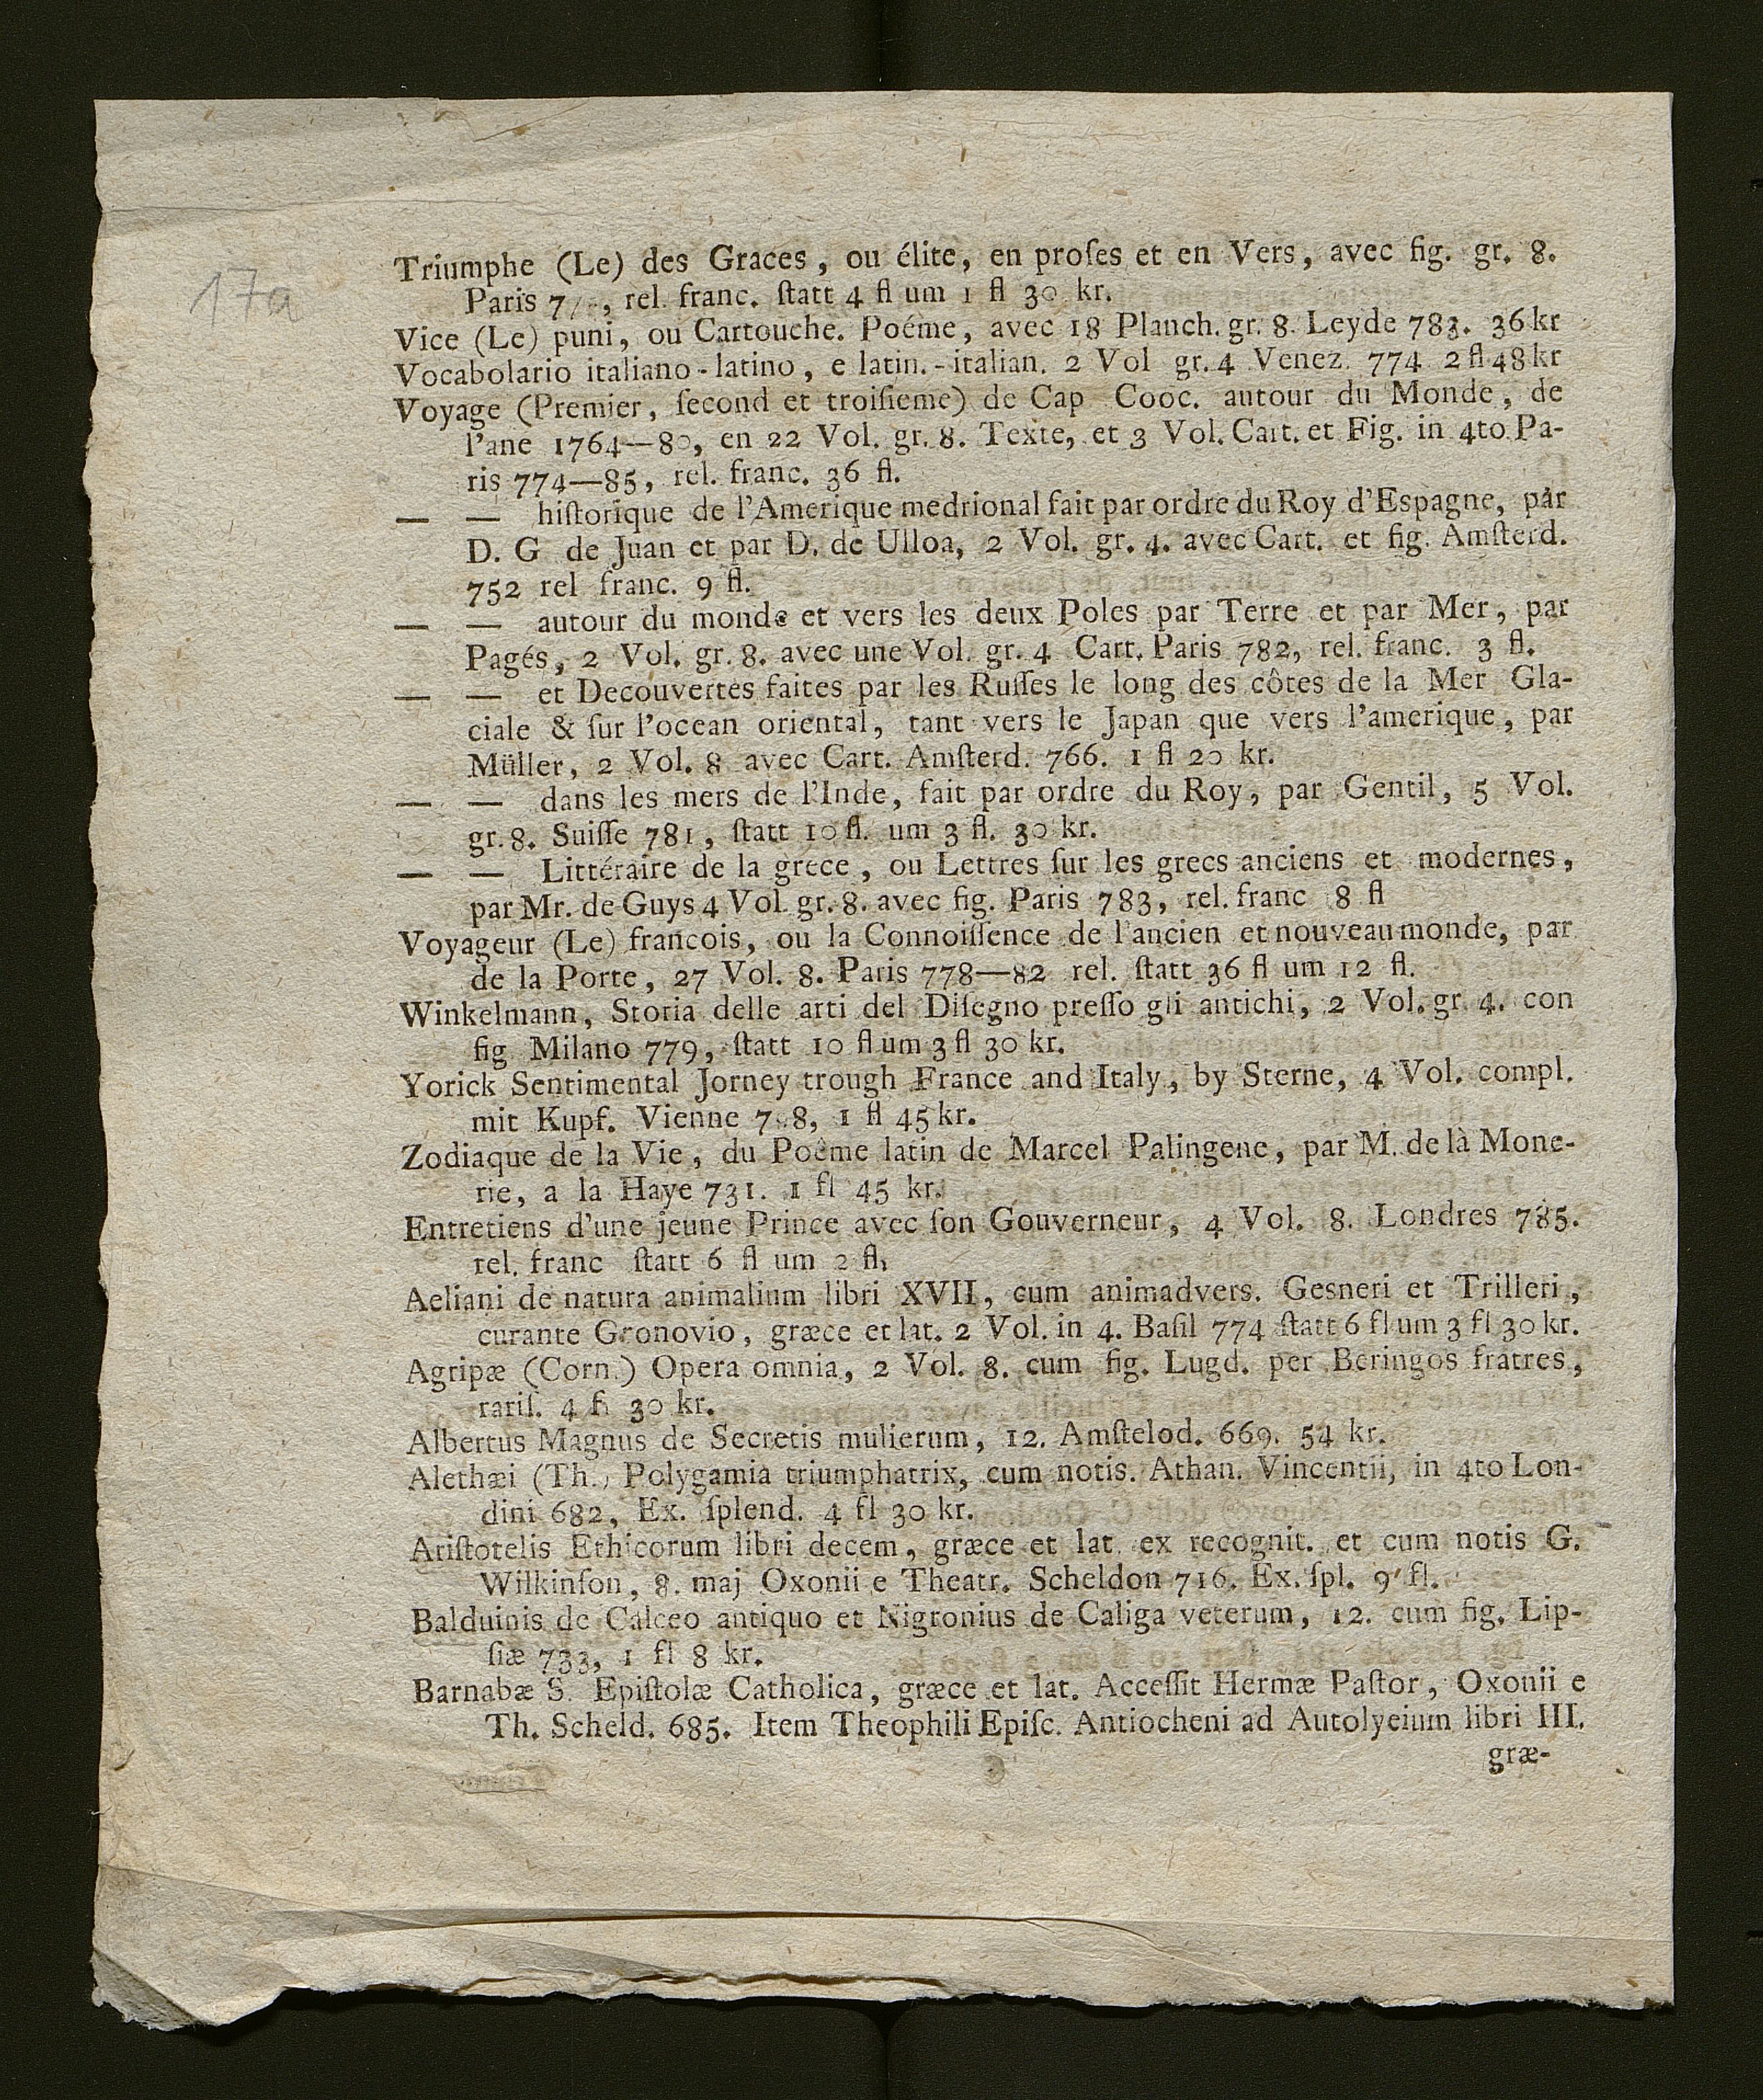 17a
Triumphe (Le) des Graces, ou élite, en proſes et en Vers, avec fig. gr. 8.
Paris rel. franc. ſtatt 4 fl um 1 fl 30 kr.
Vice (Le) puni, ou Cartouche. Poéme, avec 18 Planch. gr. 8. Leyde 783. 36 kr
Vocabolario italiano-latino, e latin.-italian. 2 Vol gr. 4 Venez. 774 2 fl 48 kr
Voyage (Premier, ſecond et troiſieme) de Cap Cooc. autour du Monde, de
l'ane 1764—80, en 22 Vol. gr. 8. Texte, et 3 Vol. Cart. et Fig. in 4to. Pa-
ris 774—85, rel. franc. 36 fl.
— — hiſtorique de l'Amerique medrional fait par ordre du Roy d'Espagne, par
D. G de Juan et par D. de Ulloa, 2 Vol. gr. 4. avec Cart. et fig. Amſterd.
752 rel franc. 9 fl.
— — autour du monde et vers les deux Poles par Terre et par Mer, par
Pagés, 2 Vol. gr. 8. avec une Vol. gr. 4 Cart. Paris 782, rel. franc. 3 fl.
— — et Decouvertes faites par les Ruſſes le long des côtes de la Mer Gla-
ciale & ſur l'ocean oriental, tant vers le Japan que vers l'amerique, par
Müller, 2 Vol. 8 avec Cart. Amſterd. 766. 1 fl 20 kr.
— — dans les mers de l'Inde, fait par ordre du Roy, par Gentil, 5 Vol.
gr. 8. Suiſſe 781, ſtatt 10 fl. um 3 fl. 30 kr.
— — Littéraire de la grece, ou Lettres ſur les grecs anciens et modernes,
par Mr. de Guys 4 Vol. gr. 8. avec fig. Paris 783, rel. franc 8 fl
Voyageur (Le) francois, ou la Connoiſſence de l'ancien et nouveau monde, par
de la Porte, 27 Vol. 8. Paris 778—82 rel. ſtatt 36 fl um 12 fl.
Winkelmann, Storia delle arti del Diſegno preſſo gli antichi, 2 Vol. gr. 4. con
fig Milano 779, ſtatt 10 fl um 3 fl 30 kr.
Yorick Sentimental Jorney trough France and Italy, by Sterne, 4 Vol. compl.
mit Kupf. Vienne 1 fl 45 kr.
Zodiaque de la Vie, du Poême latin de Marcel Palingene, par M. de là Mone-
rie, a la Haye 731. 1 fl 45 kr.
Entretiens d'une jeune Prince avec ſon Gouverneur, 4 Vol. 8. Londres 785.
rel. franc ſtatt 6 fl um 2 fl.
Aeliani de natura animalium libri XVII, cum animadvers. Gesneri et Trilleri,
curante Gronovio, græce et lat. 2 Vol. in 4. Baſil 774 ſtatt 6 fl um 3 fl 30 kr.
Agripæ (Corn.) Opera omnia, 2 Vol. 8. cum fig. Lugd. per Beringos fratres,
rariſ. 4 fl 30 kr.
Albertus Magnus de Secretis mulierum, 12. Amſtelod. 669. 54 kr.
Alethæi (Th.) Polygamia triumphatrix, cum notis. Athan. Vincentii, in 4to Lon-
dini 682, Ex. ſplend. 4 fl 30 kr.
Ariſtotelis Ethicorum libri decem, græce et lat. ex recognit. et cum notis G.
Wilkinſon, 8. maj Oxonii e Theatr. Scheldon 716. Ex. ſpl. 9 fl.
Balduinis de Calceo antiquo et Nigronius de Caliga veterum, 12. cum fig. Lip-
ſiæ 733, 1 fl 8 kr.
Barnabæ S. Epiſtolæ Catholica, græce et lat. Acceſſit Hermæ Paſtor, Oxonii e
Th. Scheld. 685. Item Theophili Epiſc. Antiocheni ad Autolyeium libri III.
græ-